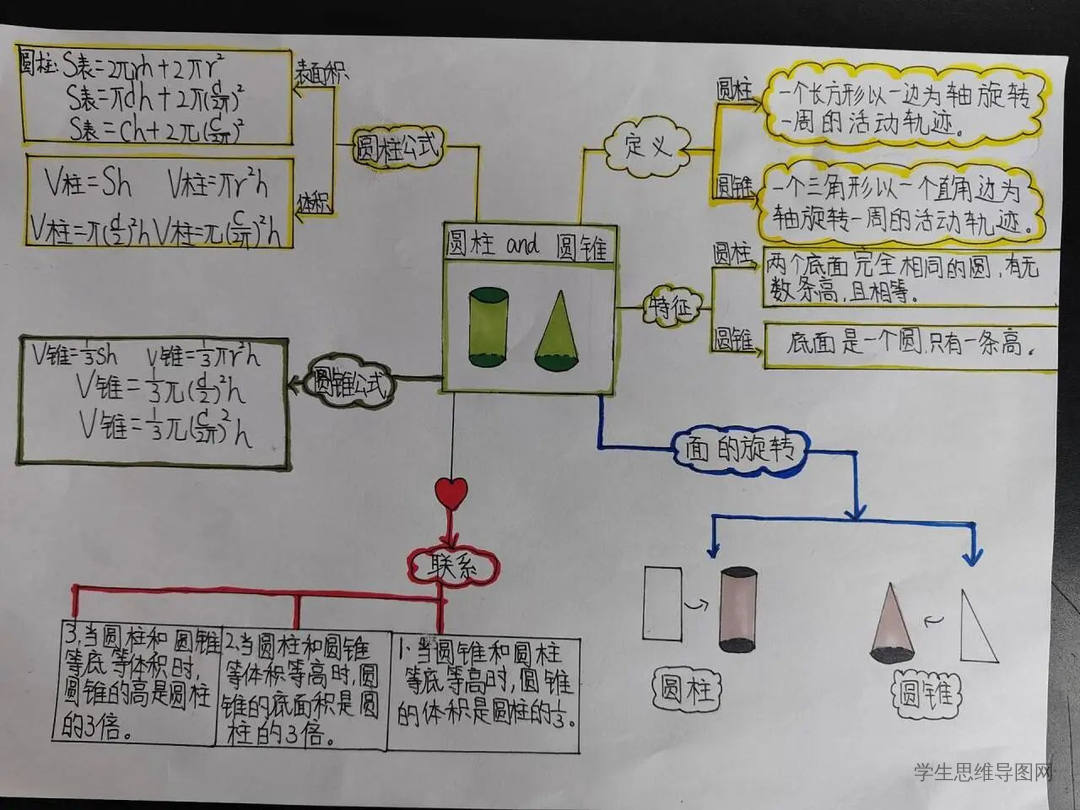 圆柱 and 圆锥
圆柱公式
表面积
圆柱:S表=2πrh+2πr²
S表=πdh+2π(d/2π)²
S表=Ch+2π(C/2π)²
体积
V柱=Sh V柱=πr²h
V柱=π(d/2)²h V柱=π(C/2π)²h
定义
圆柱
一个长方形以一边为轴旋转
一周的活动轨迹。
圆锥
一个三角形以一个直角边为
轴旋转一周的活动轨迹。
特征
圆柱
两个底面完全相同的圆,有无
数条高,且相等。
圆锥
底面是一个圆,只有一条高。
圆锥公式
V锥=1/3sh V锥=1/3πr²h
V锥=1/3π(d/2)²h
V锥=1/3π(C/2π)²h
面的旋转
圆柱
圆锥
联系
3.当圆柱和圆锥
等底等体积时,
圆锥的高是圆柱
的3倍。
2.当圆柱和圆锥
等体积等高时,圆
锥的底面积是圆
柱的3倍。
1.当圆锥和圆柱
等底等高时,圆锥
的体积是圆柱的1/3。
学生思维导图网